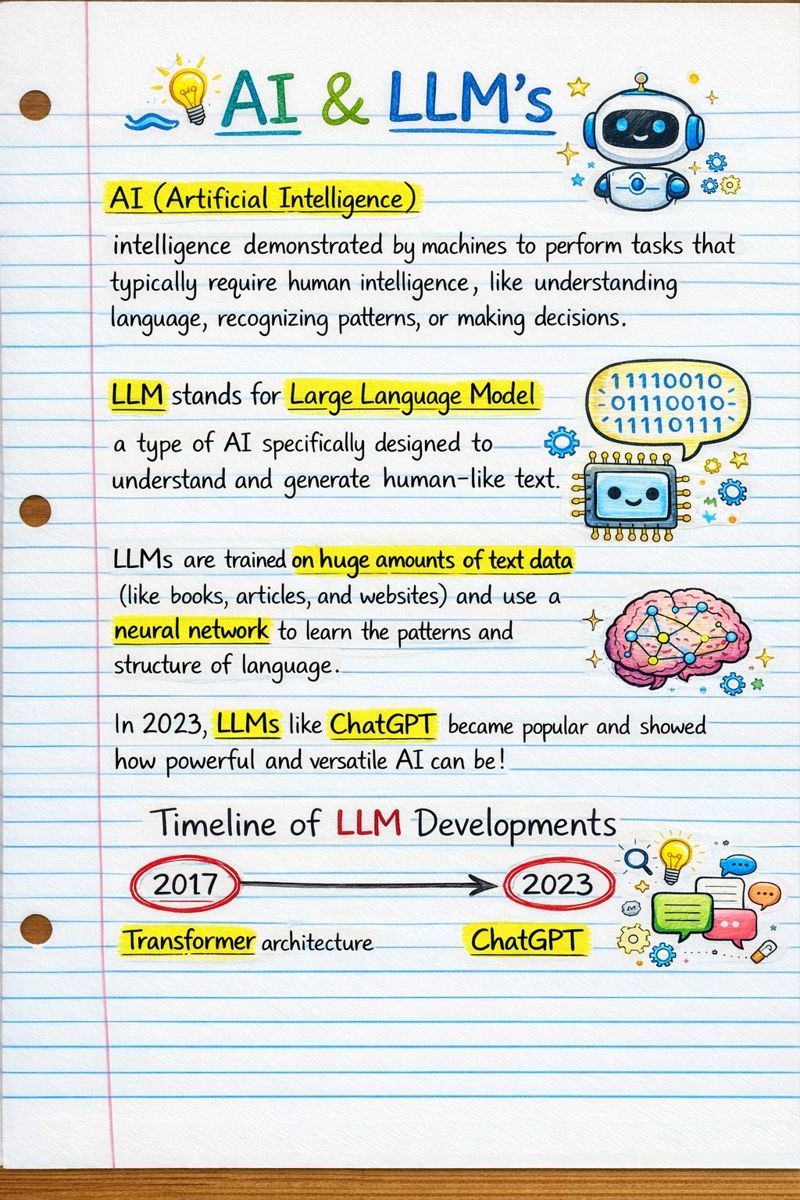 AI & LLM's
AI (Artificial Intelligence)
intelligence demonstrated by machines to perform tasks that
typically require human intelligence, like understanding
language, recognizing patterns, or making decisions.
LLM stands for Large Language Model
11110010
01110010-
11110111
a type of AI specifically designed to
understand and generate human-like text.
LLMs are trained on huge amounts of text data
(like books, articles, and websites) and use a
neural network to learn the patterns and
structure of language.
In 2023, LLMs like ChatGPT became popular and showed
how powerful and versatile AI can be!
Timeline of LLM Developments
2017 2023
Transformer architecture ChatGPT